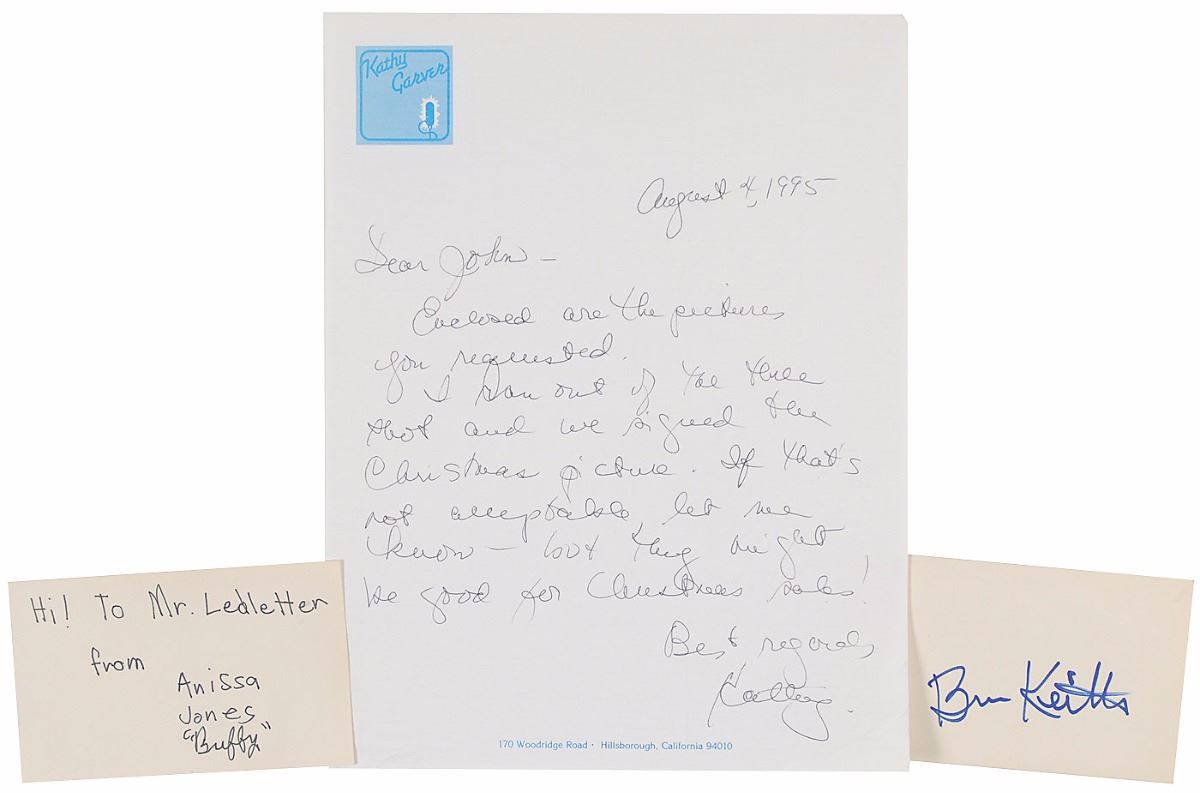 Kathy
Garver
August 4, 1995
Dear John –
Enclosed are the pictures
you requested.
I ran out of the three
shot and we signed the
Christmas picture. If that's
not acceptable, let me
know – but they might
be good for Christmas sales!
Best regards
Kathy.
170 Woodridge Road · Hillsborough, California 94010
Hi! To Mr. Ledletter
from
Anissa
Jones
"Buffy"
Brian Keith